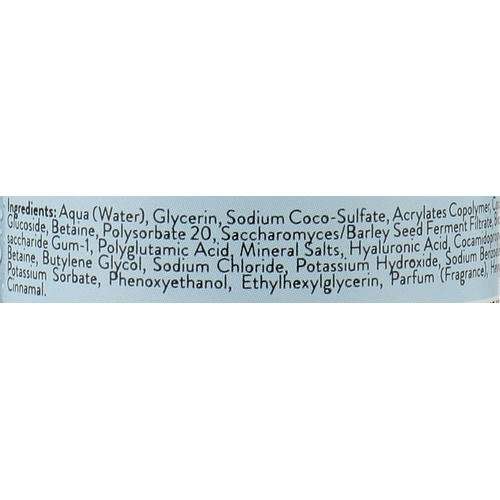 Ingredients: Aqua (Water), Glycerin, Sodium Coco-Sulfate, Acrylates Copolymer,
Glucoside, Betaine, Polysorbate 20, Saccharomyces/Barley Seed Ferment Filtrate,
saccharide Gum-1, Polyglutamic Acid, Mineral Salts, Hyaluronic Acid,
Betaine, Butylene Glycol, Sodium Chloride, Potassium Hydroxide, Sodium
Potassium Sorbate, Phenoxyethanol, Ethylhexylglycerin, Parfum (Fragrance),
Cinnamal.